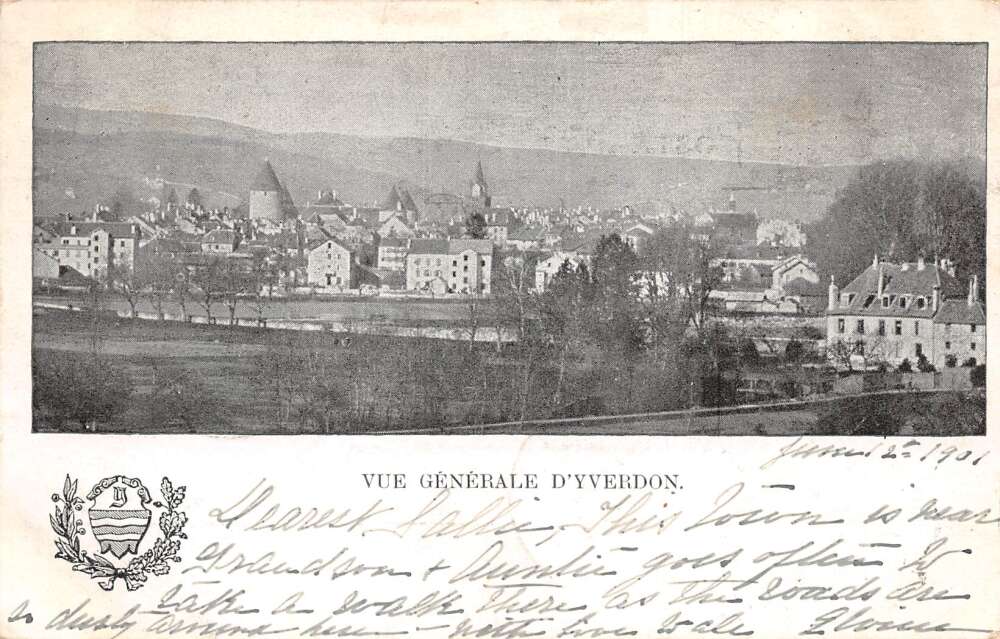 June 12th 1901
VUE GÉNÉRALE D'YVERDON.
Y
Dearest Sallie, This town is near
Grandson & Auntie goes often to
take a walk there as the roads are
so dusty around here - with love to all